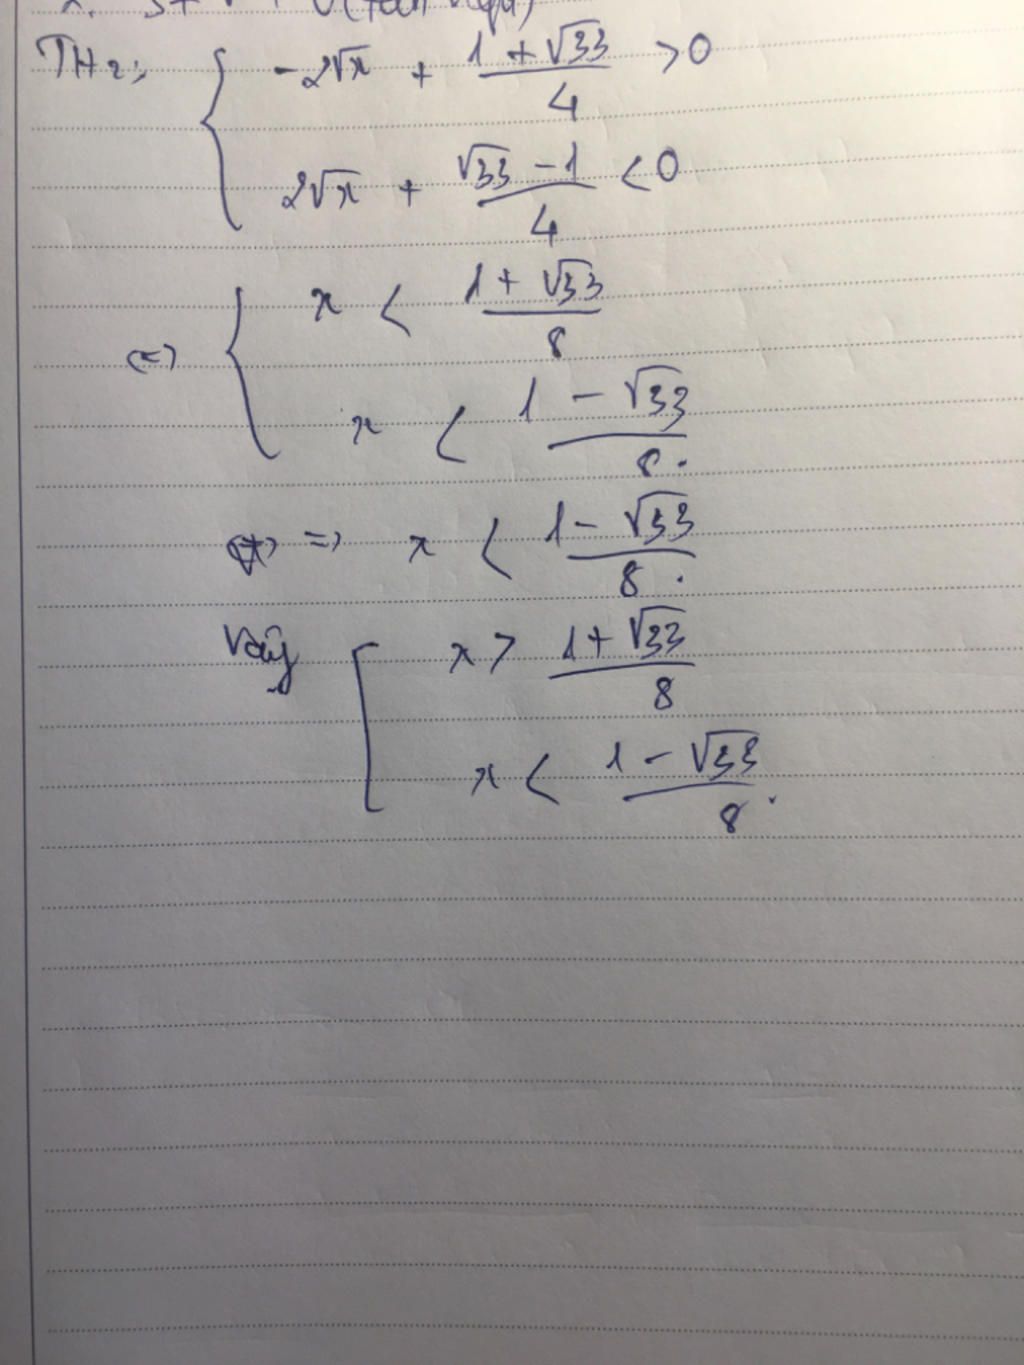 TH2:
-2√x + (1 + √33)/4 > 0
2√x + (√33 - 1)/4 < 0
<=> x < (1 + √33)/8
x < (1 - √33)/8.
=> x < (1 - √33)/8.
Vậy x > (1 + √33)/8
x < (1 - √33)/8.